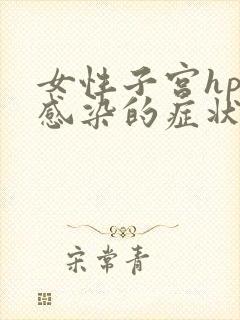 女性子宫hp
感染的症状
宋常青